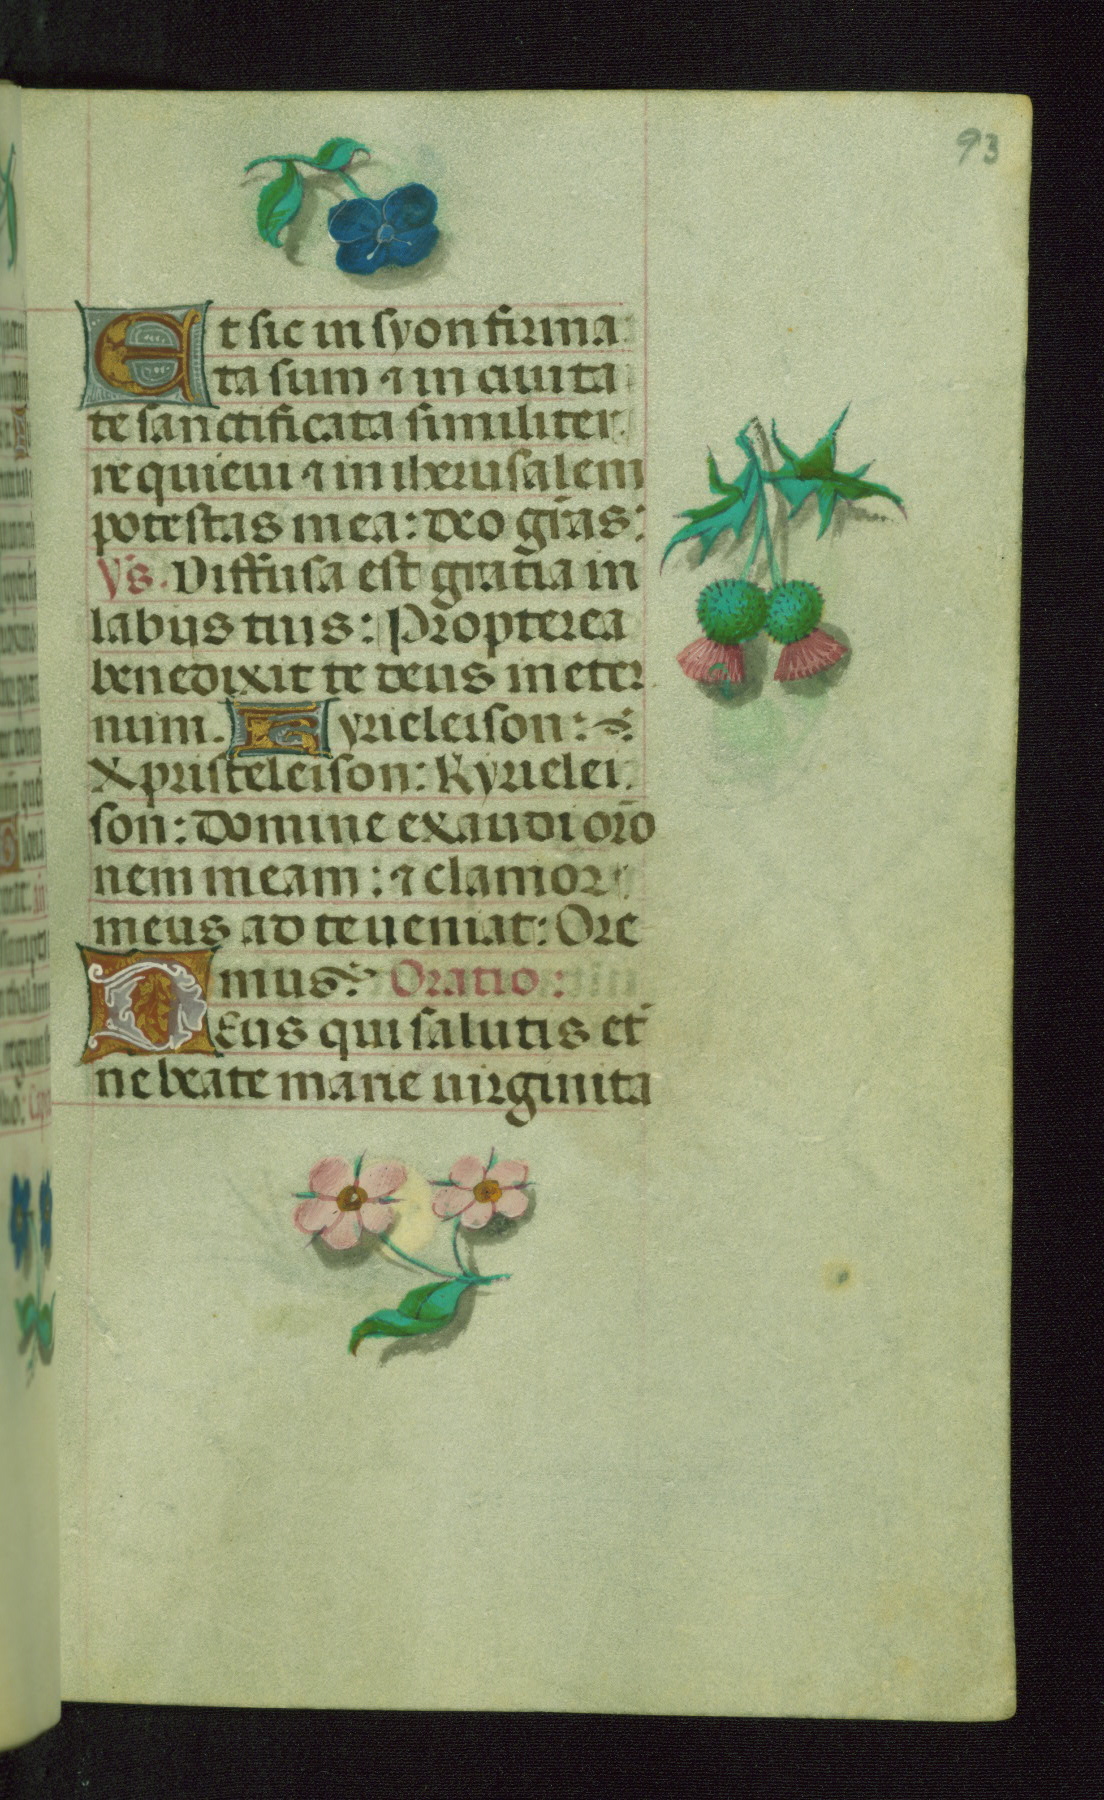 93
Et sic in syon firma
ta sum ⁊ in ciuita
te sanctificata similiter
requieui ⁊ in iherusalem
potestas mea: deo grãs:
Vs. Diffusa est gratia in
labijs tuis: Propterea
benedixit te deus in eter
num. Kyrieleison:
Xpristeleison: Kyrielei
son: Domine exaudi orõ
nem meam: ⁊ clamor
meus ad te ueniat: Ore
mus: Oratio:
Deus qui salutis et̃
ne beate marie uirginita